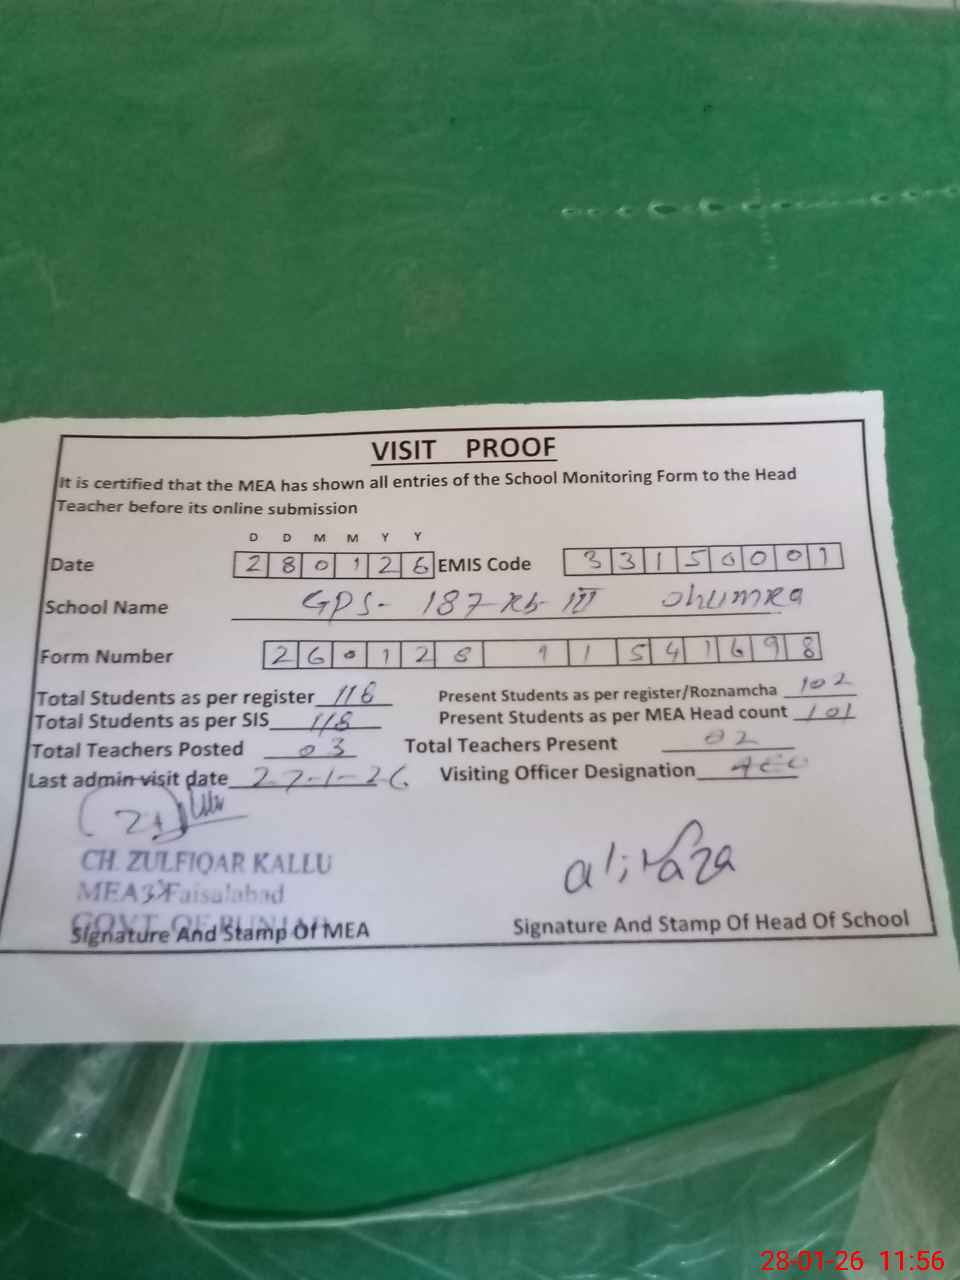 VISIT PROOF
It is certified that the MEA has shown all entries of the School Monitoring Form to the Head
Teacher before its online submission
D D M M Y Y
Date 280126 EMIS Code 33150001
School Name GPS- 187-Rb-III
Form Number 260128 11541698
Total Students as per register 118 Present Students as per register/Roznamcha 102
Total Students as per SIS 118 Present Students as per MEA Head count 101
Total Teachers Posted 03 Total Teachers Present 02
Last admin visit date 27-1-26 Visiting Officer Designation
CH. ZULFIQAR KALLU ali raza
MEA Faisalabad
GOVT OF PUNJAB
Signature And Stamp Of MEA Signature And Stamp Of Head Of School
28-01-26 11:56